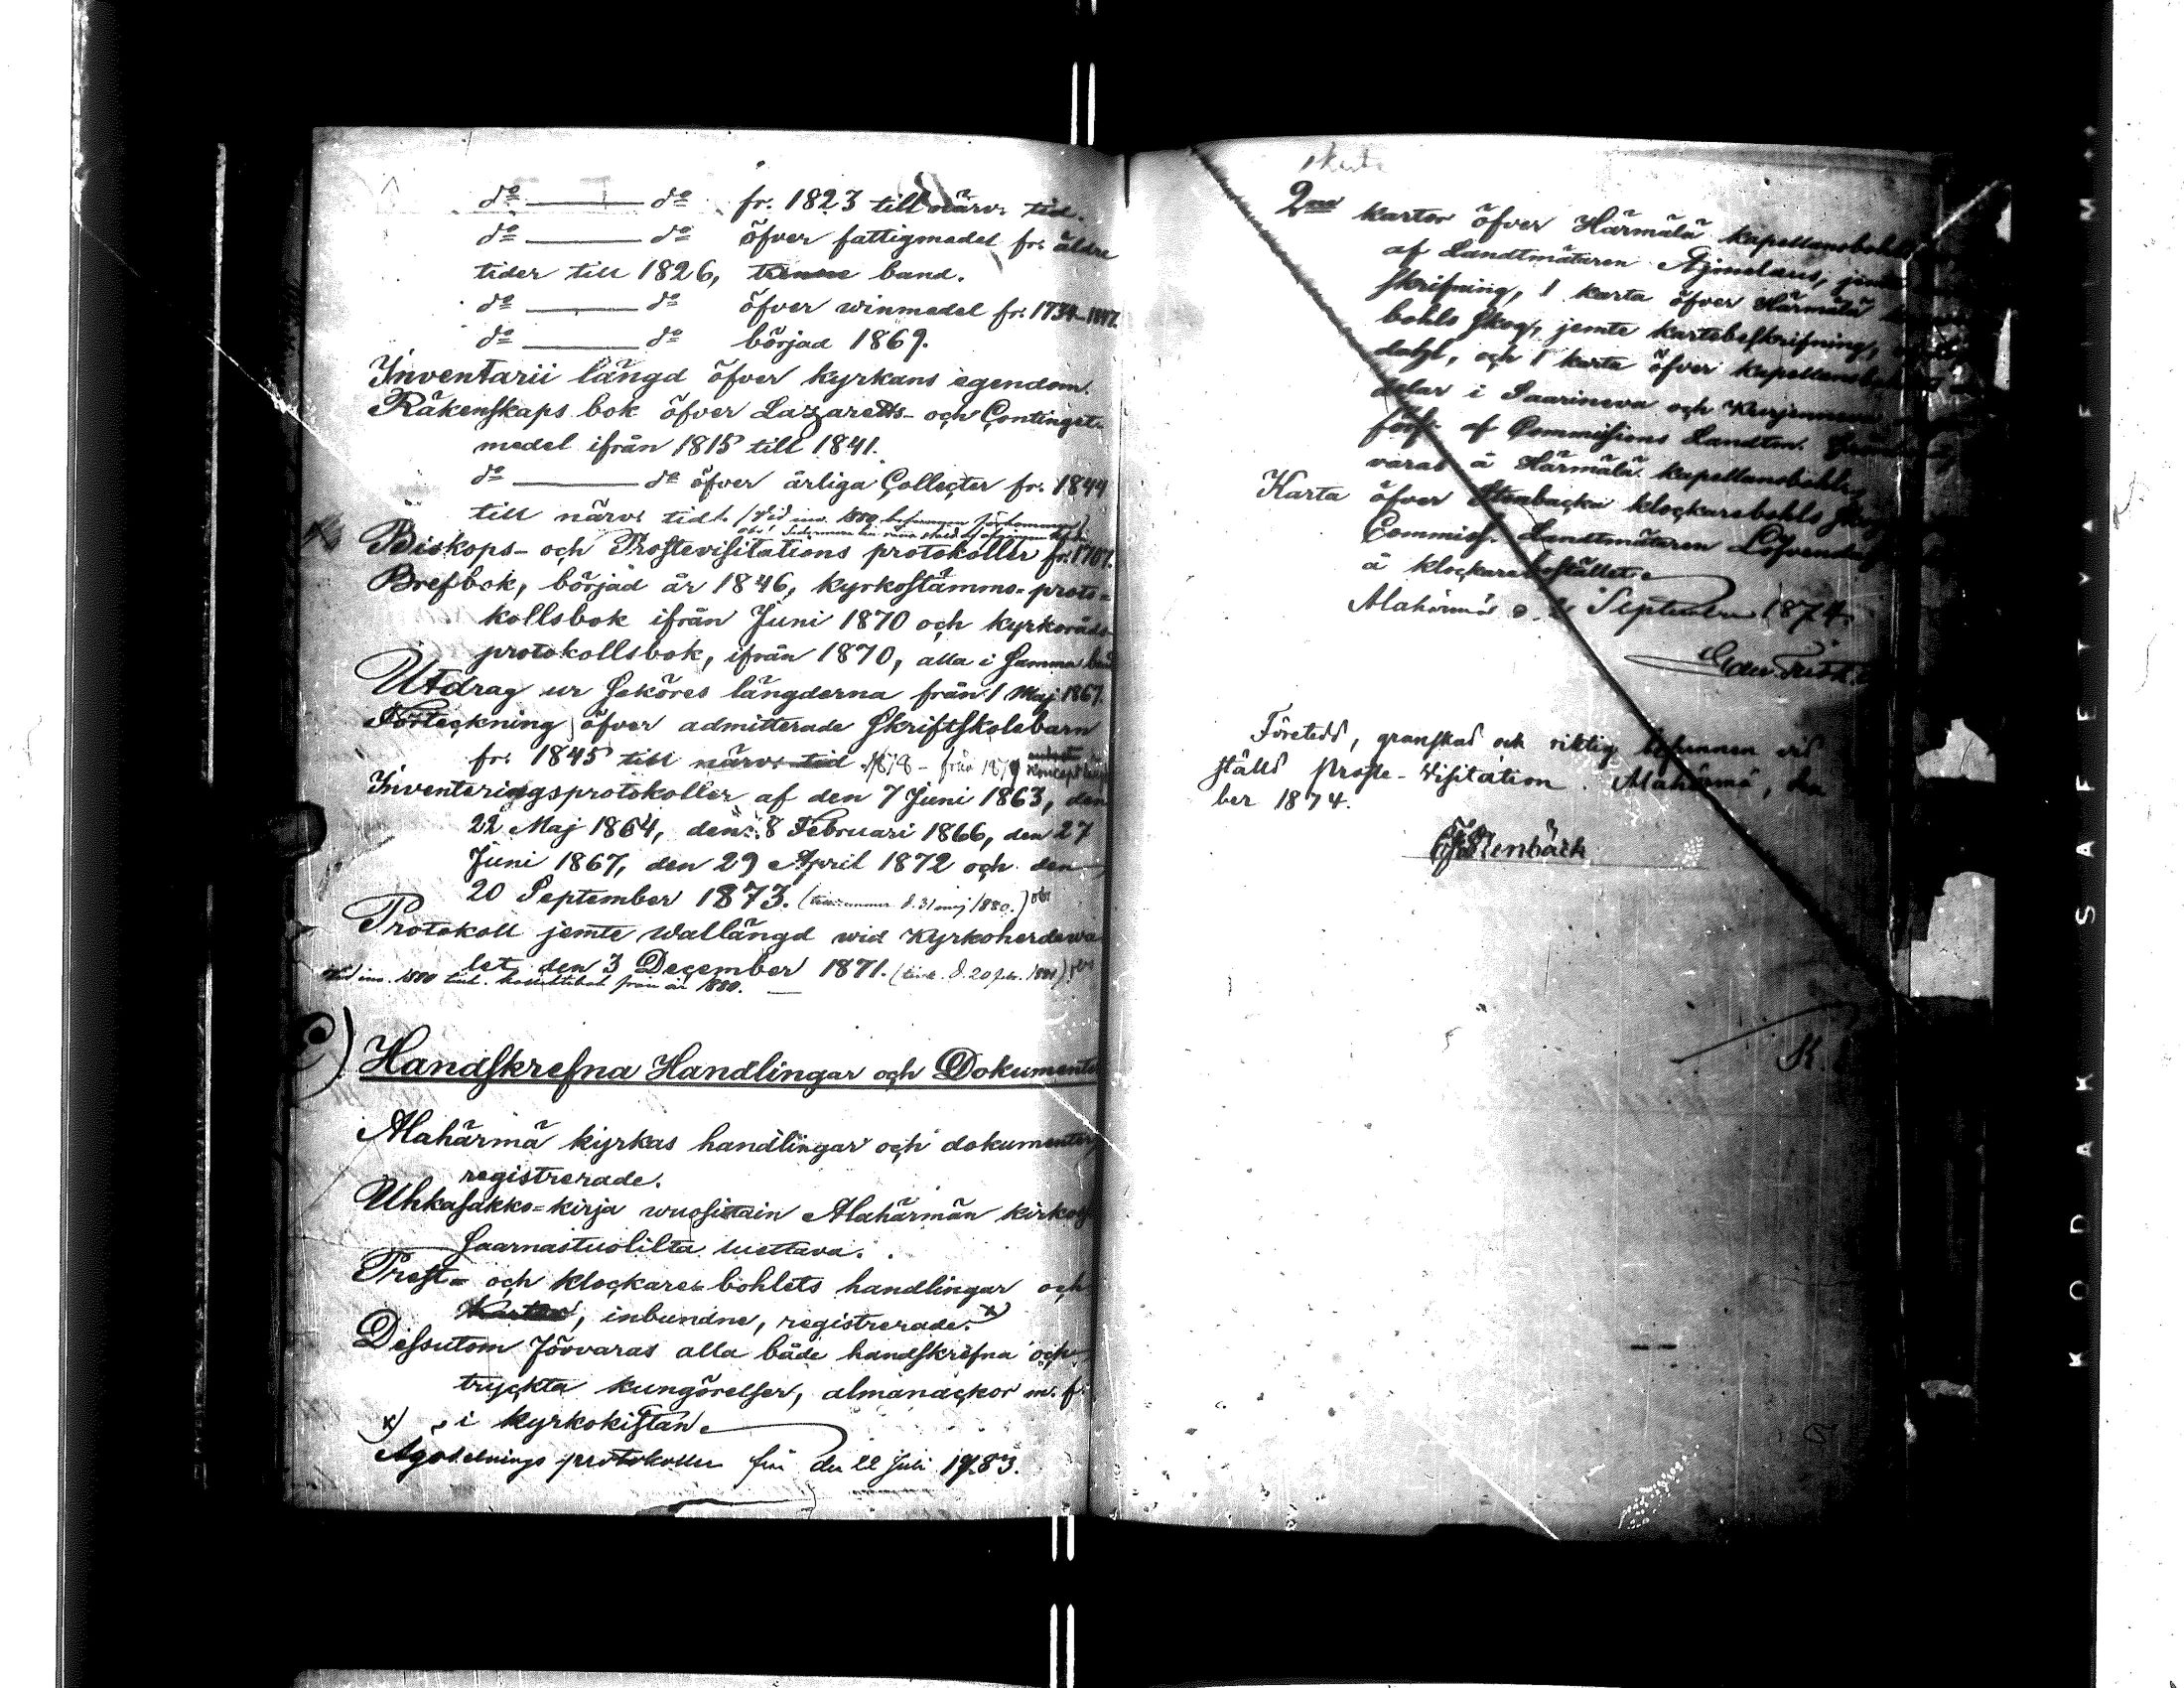 dº ——— dº fr. 1823 till närv. tid.
dº ——— dº öfver fattigmedel fr. äldre
tider till 1826, trenne band.
dº ——— dº öfver winmedel fr. 1734-1847.
dº ——— dº börjad 1869.
Inventarii längd öfver kyrkans egendom.
Räkenskaps bok öfver Lazaretts- och Continget-
medel ifrån 1815 till 1841.
dº ——— dº öfver årliga Collecter fr. 1844
till närv. tid. (Vid inv. 1880 befunnen förkommen)
Biskops- och Prostevisitations protokoller fr. 1707.
Brefbok, börjad år 1846, kyrkostämmo-proto-
kollsbok ifrån Juni 1870 och kyrkoråds-
protokollsbok, ifrån 1870, alla i samma
Utdrag ur Saköres längderna från 1 Maj 1867.
Förteckning öfver admitterade Skriftskolebarn
fr. 1845 till närv. tid 1878 - från 1879
Inventeringsprotokoller af den 7 Juni 1863, den
22 Maj 1864, den 8 Februari 1866, den 27
Juni 1867, den 29 April 1872 och den
20 September 1873. (d. 31 maj 1880.)
Protokoll jemte wallängd wid Kyrkoherdewa-
let den 3 December 1871.
Vid inv. 1880 från år 1880.
C) Handskrefna Handlingar och Dokumenter
Alahärmä kyrkas handlingar och dokumenter,
registrerade.
Uhkasakko-kirja wuosittain Alahärmän kirkos
Saarnastuolilta luettava.
Prest- och klockare-bohlets handlingar och
Kartor, inbundne, registrerade. x)
Dessutom förvaras alla både handskrefna och
tryckta kungörelser, almanackor m. f.
i kyrkokistan.
x) Ägodelnings protokoller den 22 Juli 1783.
2ne kartor öfver Härmälä kapellansbohls
af Landtmätaren Ajmelaeus, jemte
skrifning, 1 karta öfver Härmälä
bohls skog, jemte kartebeskrifning,
dahl, och 1 karta öfver kapellansbohlets
delar i Saarineva och Kurjenneva
förf. af Commissions Landtm.
varas å Härmälä kapellansbohle
Karta öfver Stenbacka klockarebohls skog
Commiss. Landtmätaren Löfvendahl
å klockarebostället.
Alahärmä d. September 1874.
Företedd, granskad och riktig befunnen vid
ställd Proste-Visitation. Alahärmä, den
ber 1874.
Stenbäck
K.
KODAK SAFETY FILM